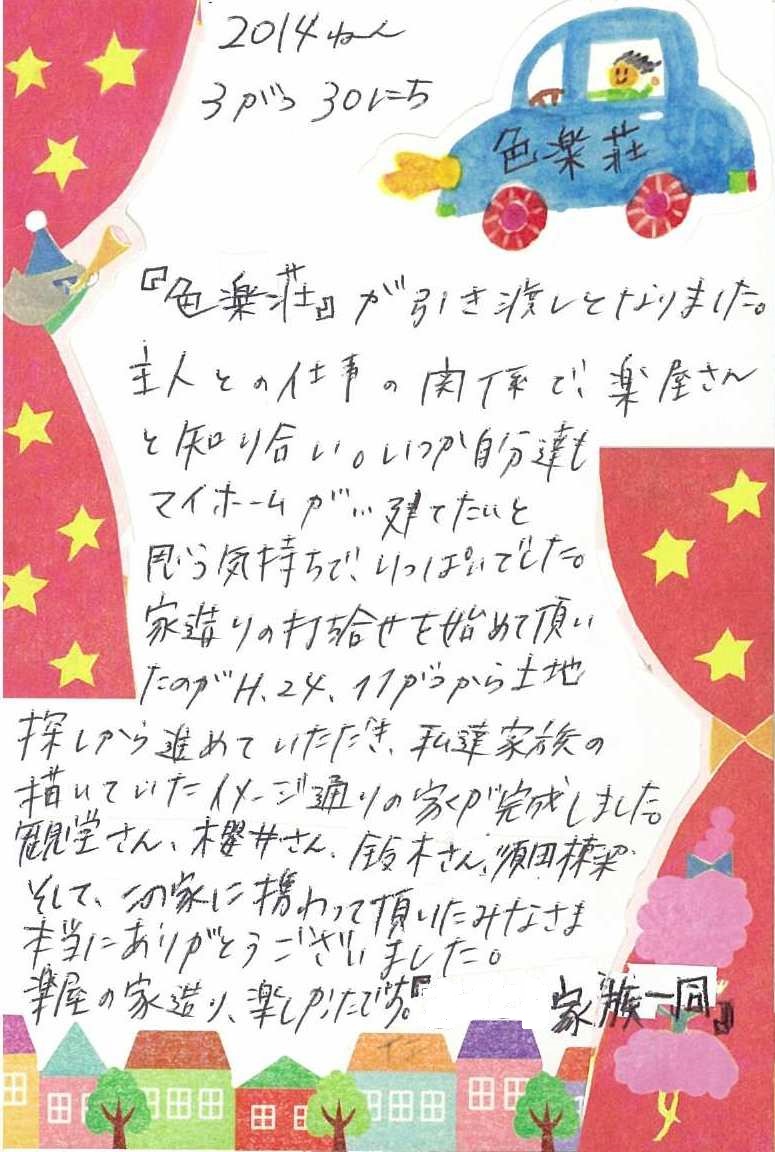 2014ねん
3がつ 30にち
色楽荘
『色楽荘』が引き渡しとなりました。
主人との仕事の関係で、楽屋さん
と知り合い。いつか自分達も
マイホームが…建てたいと
思う気持ちで、いっぱいでした。
家造りの打合せを始めて頂い
たのがH.24.11がつから土地
探しから進めていただき、私達家族の
描いていたイメージ通りの家が完成しました。
観堂さん、櫻井さん、鈴木さん、須田棟梁
そして、この家に携わって頂いたみなさま
本当にありがとうございました。
楽屋の家造り、楽しかったです。『 家族一同』